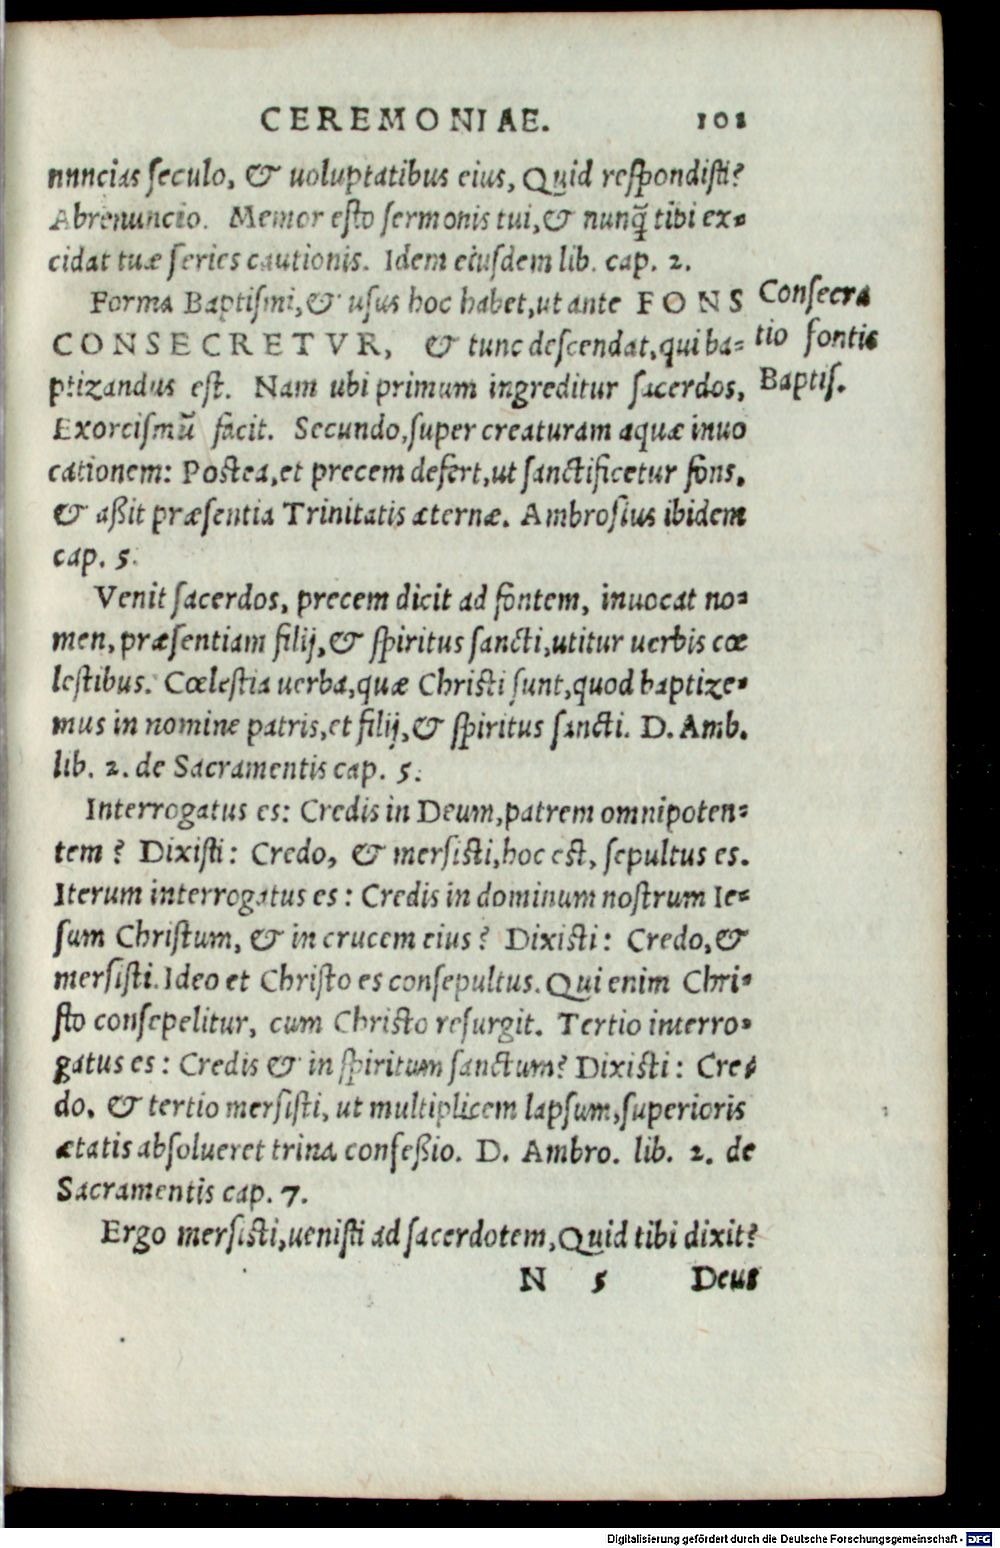 CEREMONIAE. 101
nuncias seculo, & uoluptatibus eius, Quid respondisti?
Abrenuncio. Memor esto sermonis tui, & nunq̃ tibi ex-
cidat tuæ series cautionis. Idem eiusdem lib. cap. 2.
Forma Baptismi, & usus hoc habet, ut ante FONS
CONSECRETVR, & tunc descendat, qui ba-
ptizandus est. Nam ubi primum ingreditur sacerdos,
Exorcismũ facit. Secundo, super creaturam aquæ inuo
cationem: Postea, et precem defert, ut sanctificetur fons,
& aßit præsentia Trinitatis æternæ. Ambrosius ibidem
cap. 5.
Consecra
tio fontis
Baptis.
Venit sacerdos, precem dicit ad fontem, inuocat no-
men, præsentiam filij, & spiritus sancti, utitur uerbis cœ
lestibus. Cœlestia uerba, quæ Christi sunt, quod baptize-
mus in nomine patris, et filij, & spiritus sancti. D. Amb.
lib. 2. de Sacramentis cap. 5.
Interrogatus es: Credis in Deum, patrem omnipoten-
tem? Dixisti: Credo, & mersisti, hoc est, sepultus es.
Iterum interrogatus es: Credis in dominum nostrum Ie-
sum Christum, & in crucem eius? Dixisti: Credo, &
mersisti. Ideo et Christo es consepultus. Qui enim Chri-
sto consepelitur, cum Christo resurgit. Tertio interro-
gatus es: Credis & in spiritum sanctum? Dixisti: Cre-
do, & tertio mersisti, ut multiplicem lapsum, superioris
ætatis absolueret trina confeßio. D. Ambro. lib. 2. de
Sacramentis cap. 7.
Ergo mersisti, uenisti ad sacerdotem, Quid tibi dixit?
N 5 Deus
Digitalisierung gefördert durch die Deutsche Forschungsgemeinschaft - DFG